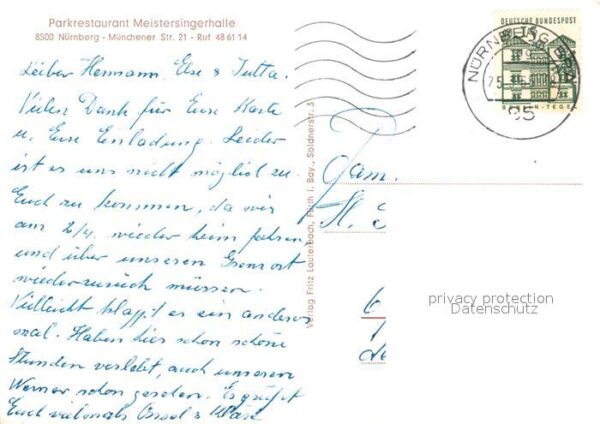 Parkrestaurant Meistersingerhalle
8500 Nürnberg - Münchener Str. 21 - Ruf 48 61 14
Lieber Hermann, Else & Jutta.
Vielen Dank für Eure Karte
u. Eure Einladung. Leider
ist es uns nicht möglich zu
Euch zu kommen, da wir
am 2/4. wieder heim fahren
und über unseren Grenzort
wieder zurück müssen.
Vielleicht klappt es ein anderes
mal. Haben hier schon schöne
Stunden verlebt, auch unseren
Werner schon gesehen. Es grüßt
Euch vielmals &
Verlag Fritz Lauterbach, Fürth i. Bay., Soldnerstr. 31
DEUTSCHE BUNDESPOST
BERLIN-TEGEL
NÜRNBERG
85
Fam.
H. S
6
1
de
privacy protection
Datenschutz